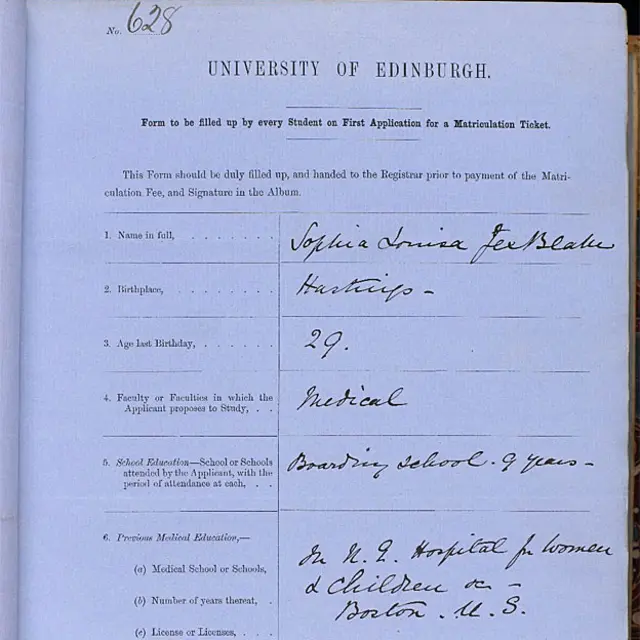 No. 628
UNIVERSITY OF EDINBURGH.
Form to be filled up by every Student on First Application for a Matriculation Ticket.
This Form should be duly filled up, and handed to the Registrar prior to payment of the Matri-
culation Fee, and Signature in the Album.
1. Name in full, . . . . . . . Sophia Louisa Jex Blake
2. Birthplace, . . . . . . . . Hastings –
3. Age last Birthday, . . . . . . 29.
4. Faculty or Faculties in which the
Applicant proposes to Study, . . Medical
5. School Education—School or Schools
attended by the Applicant, with the
period of attendance at each, . . Boarding school . 9 years –
6. Previous Medical Education,—
(a) Medical School or Schools,
(b) Number of years thereat, .
(c) License or Licenses, . . .
In N. E. Hospital for Women
& Children –
Boston . U. S.